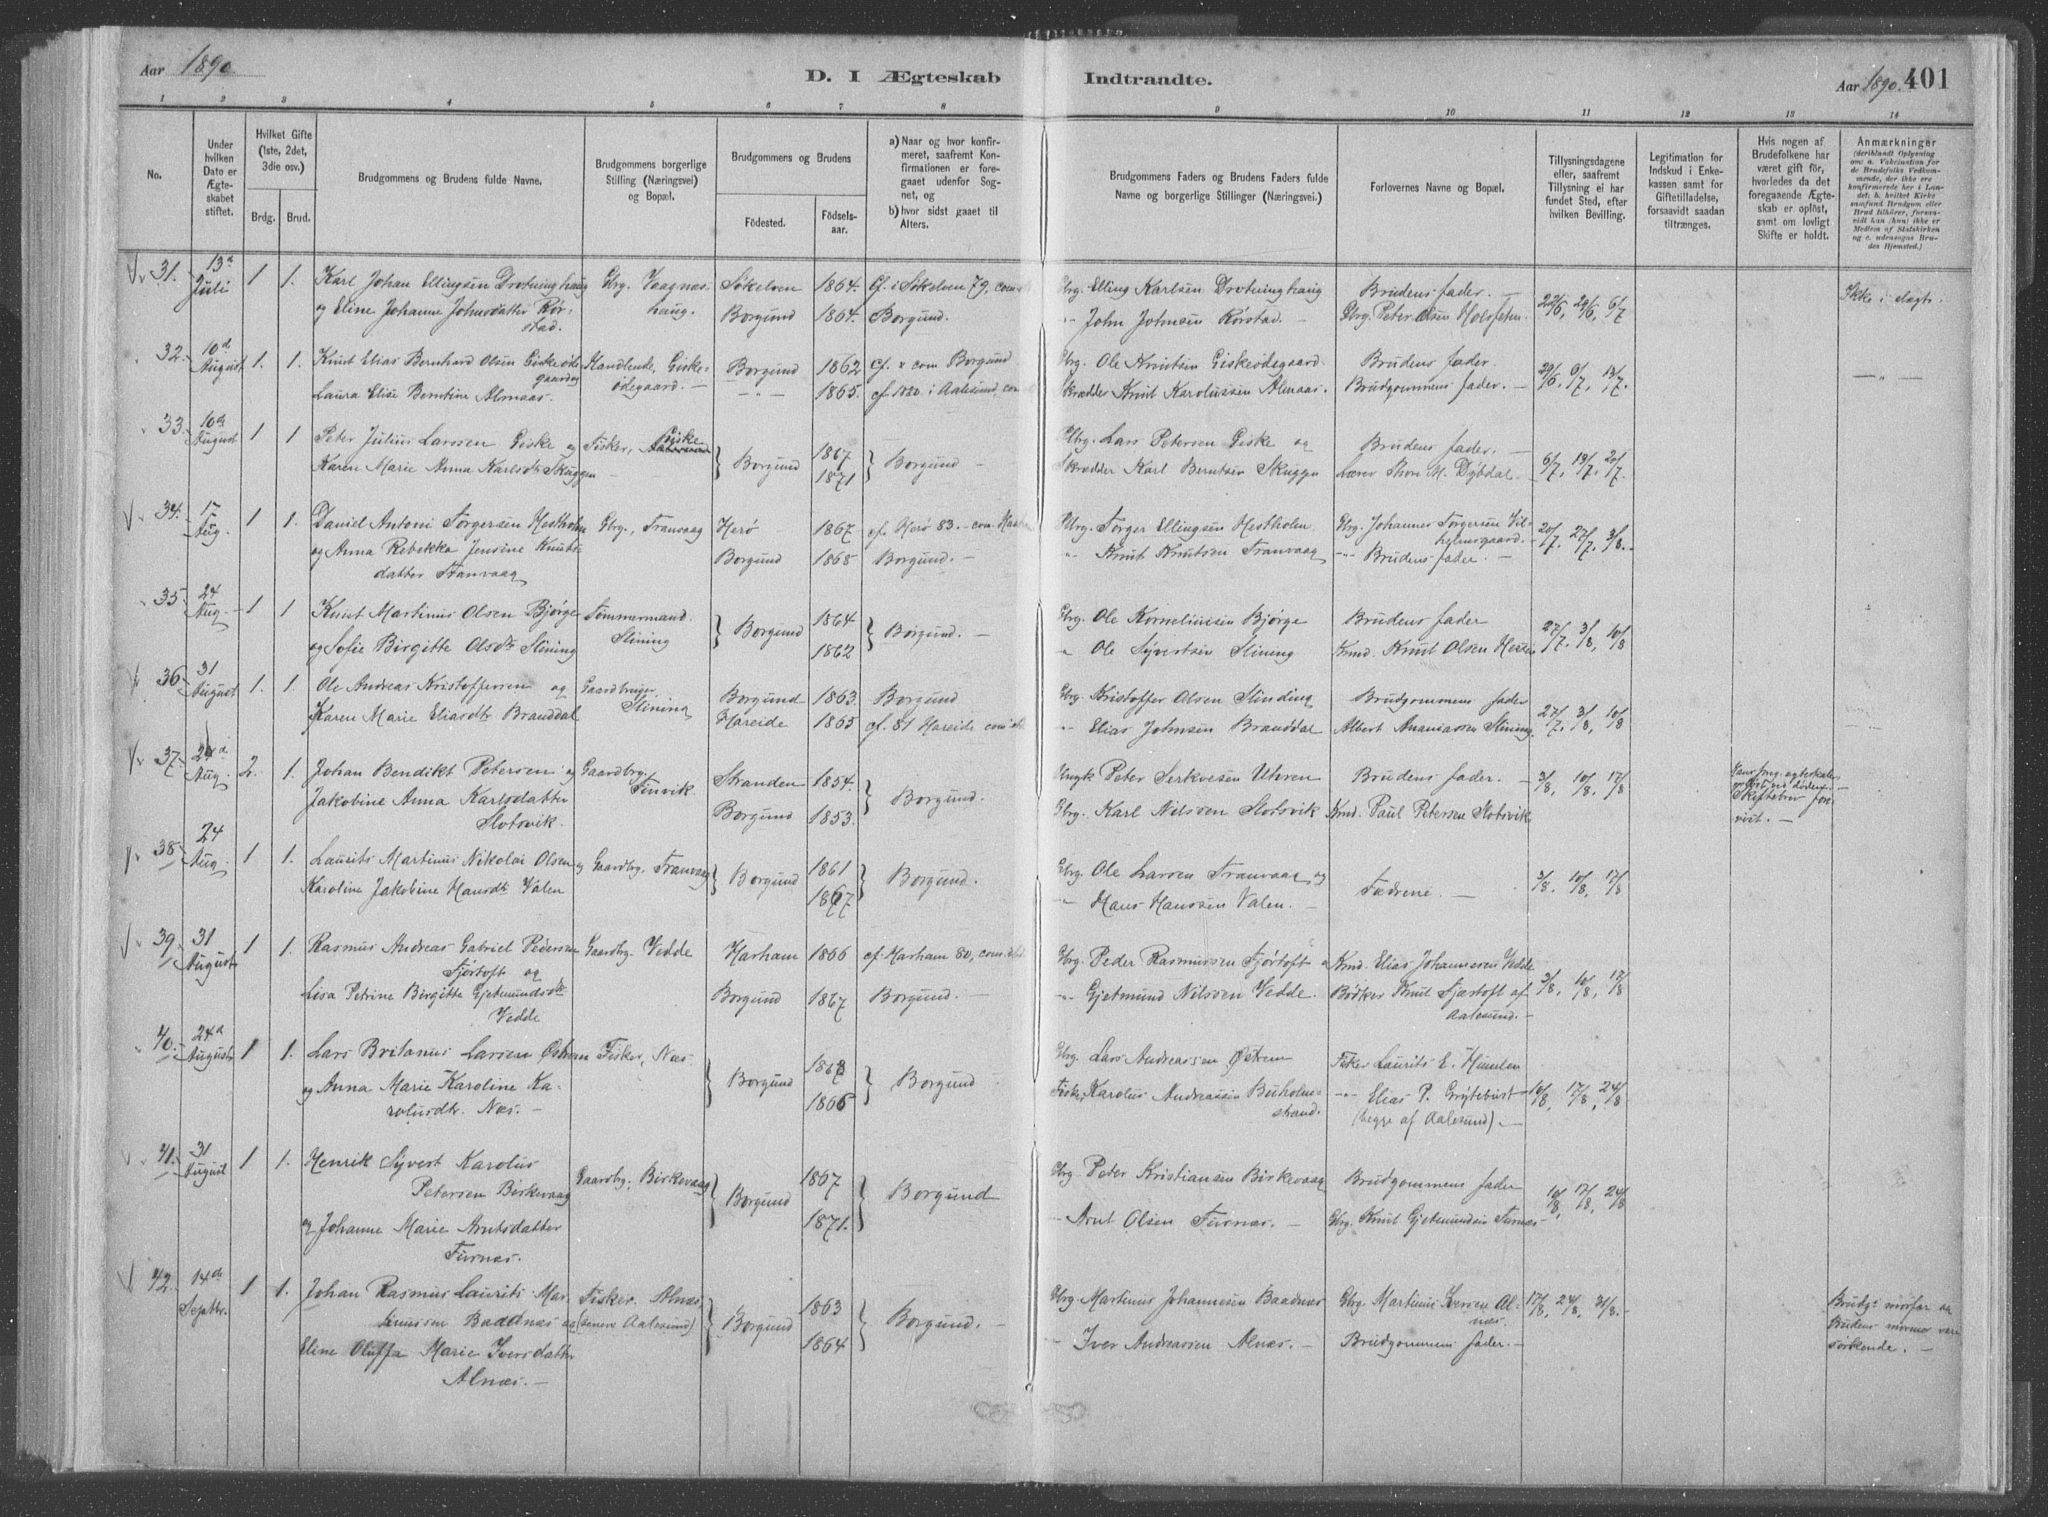 Aar 1890
D. I Ægteskab Indtraadte.
Aar 1890. 401
1 2 3 4 5 6 7 8 9 10 11 12 13 14
No.
Under hvilken Dato er Ægteskabet stiftet.
Hvilket Gifte (1ste, 2det, 3die osv.)
Brdg. Brud.
Brudgommens og Brudens fulde Navne.
Brudgommens borgerlige Stilling (Næringsvei) og Bopæl.
Brudgommens og Brudens
Fødested. Fødselsaar.
a) Naar og hvor konfirmeret, saafremt Konfirmationen er foregaaet udenfor Sognet, og
b) hvor sidst gaaet til Alters.
Brudgommens Faders og Brudens Faders fulde Navne og borgerlige Stillinger (Næringsvei.)
Forlovernes Navne og Bopæl.
Tillysningsdagene eller, saafremt Tillysning ei har fundet Sted, efter hvilken Bevilling.
Legitimation for Indskud i Enkekassen samt for Giftetilladelse, forsaavidt saadan tiltrænges.
Hvis nogen af Brudefolkene har været gift, hvorledes da det foregaaende Ægteskab er opløst, samt om lovligt Skifte er holdt.
Anmærkninger
31. 13d Juli 1 1. Karl Johan Ellingsen Drotninghaug Gbrg. Vaagneshaug. Søkelven 1864. Cf. i Søkelven 79, com. Gbrg. Elling Karlsen Drotninghaug Brudens fader. — 22/6, 29/6, 6/7 Ikke i slegt.
og Eline Johanne Johnsdatter Rørstad. Borgund 1864. Borgund. -"- John Johnsen Rørstad. — Gbrg. Peter Olsen Holsæten.
32. 10d August 1. 1. Knut Elias Bernhard Olsen Giskeødegaard og Handlende, Giskeødegaard. — Borgund 1862 cf. & com Borgund Gbrg. Ole Knutsen Giskeødegaard. Brudens fader 29/6, 6/7, 13/7. — " —
Laura Elise Berntine Almaas. — " — 1865. cf. 1880 i Aalesund, com. Skrædder Knut Karolussen Almaas. Brudgommens fader. —
33. 10d August 1 1 Peter Julius Larssen Giske og Fisker, Giske Borgund 1867 Borgund — Gbrg. Lars Petersen Giske og Brudens fader. 6/7, 13/7, 20/7.
Karen Marie Anna Karlsdtr Skuggen — 1871 Skrædder Karl Berntsen Skuggen Lærer Thore M. Dybdal.
34. 17 Aug. 1 1. Daniel Antoni Torgersen Hestholm Gbrg., Tranvaag Herø 1867 cf. Herø 83. — com. Gbrg. Torger Ellingsen Hestholm Gbrg. Johannes Torgersen 20/7, 27/7, 3/8. —
og Anna Rebekka Jensine Knutsdatter Tranvaag Borgund 1868 Borgund. — " Knut Knutsen Tranvaag Brudens fader. —
35. 24 Aug. 1 1 Knut Martinus Olsen Bjørge Tømmermand. Slining Borgund 1864 Borgund. — Gbrg. Ole Kornelinssen Bjørge Brudens fader 27/7, 3/8, 10/8
og Sofie Birgitte Olsdtr Slining 1862 " Ole Syvertsen Slining Kmd. Knut Olsen Hessen
36 31 August 1. 1. Ole Andreas Kristoffersen og Gaardbruger, Slining Borgund 1863. Borgund Gbrg. Kristoffer Olsen Slinding Brudgommens fader 27/7, 3/8, 10/8
Karen Marie Eliasdtr Branddal Hareide 1865 cf. 81 Hareide com. " Elias Johnsen Branddal Albert Ananiassen Slining
37. 24d Aug. 2. 1. Johan Bendikt Petersen og Gaardbrg. Tinvik. Stranden 1854. Borgund. Ungk Peter Serkvesen Uhren Brudens fader. — 3/8, 10/8, 17/8
Jakobine Anna Karlsdatter Slotsvik. Borgund 1853. Gbrg. Karl Nilssen Slotsvik Kmd. Paul Petersen Slotsvik Skiftebrev forevist. —
38. 24 Aug. 1 1. Laurits Martinus Nikolai Olsen og Gaardbg. Tranvaag Borgund 1861 Borgund. Gbrg. Ole Larsen Tranvaag og Fædrene. — 3/8, 10/8, 17/8
Karoline Jakobine Hansdtr Valen 1867 " Hans Hanssen Valen. —
39. 31 August 1 1. Rasmus Andreas Gabriel Pedersen Fjørtoft og Gaardbrg. Vedde Harham 1866 cf. Harham 80, com. Gbrg. Peder Rasmussen Fjørtoft og Kmd. Elias Johannessen Vedde 3/8, 10/8, 17/8
Lisa Petrine Birgitte Gjetmundsdtr Vedde Borgund 1867 Borgund. — " Gjetmund Nilssen Vedde. Bødker Knut Fjørtoft af Aalesund. —
40. 24d August 1 1. Lars Britanus Larsen Østrem Fisker, Næs Borgund 1863 Borgund Gbrg. Lars Andreassen Østrem Fisker Laurits E. Humlen 10/8, 17/8, 24/8
og Anna Marie Karoline Karolusdtr. Næs. — 1866 Fisker Karolus Andreassen Buholmstrand. -"- Elias P. Grytebust (begge af Aalesund). —
41. 31 August 1 1. Henrik Syvert Karolus Petersen Birkevaag Gaardbg. Birkevaag Borgund 1867 Borgund Gbrg. Peter Kristiansen Birkevaag Brudgommens fader 10/8, 17/8, 24/8
og Johanne Marie Arntsdatter Furnæs. 1871. " Arnt Olsen Furnæs. — Gbrg. Knut Gjetmundsen Furnæs —
42. 14de Septbr. 1 1. Johan Rasmus Laurits Martinussen Baadnæs og Fisker. Alnæs (senere Aalesund) Borgund 1863 Borgund. — Gbrg. Martinus Johannesen Baadnæs Gbrg. Martinus Iversen Alnæs. — 17/8, 24/8, 31/8. — Brudgs morfar og Brudens mormor vare søskende. —
Eline Oluffa Marie Iversdatter Alnæs. — 1864 " Iver Andreassen Alnæs. — Brudgommens fader. —